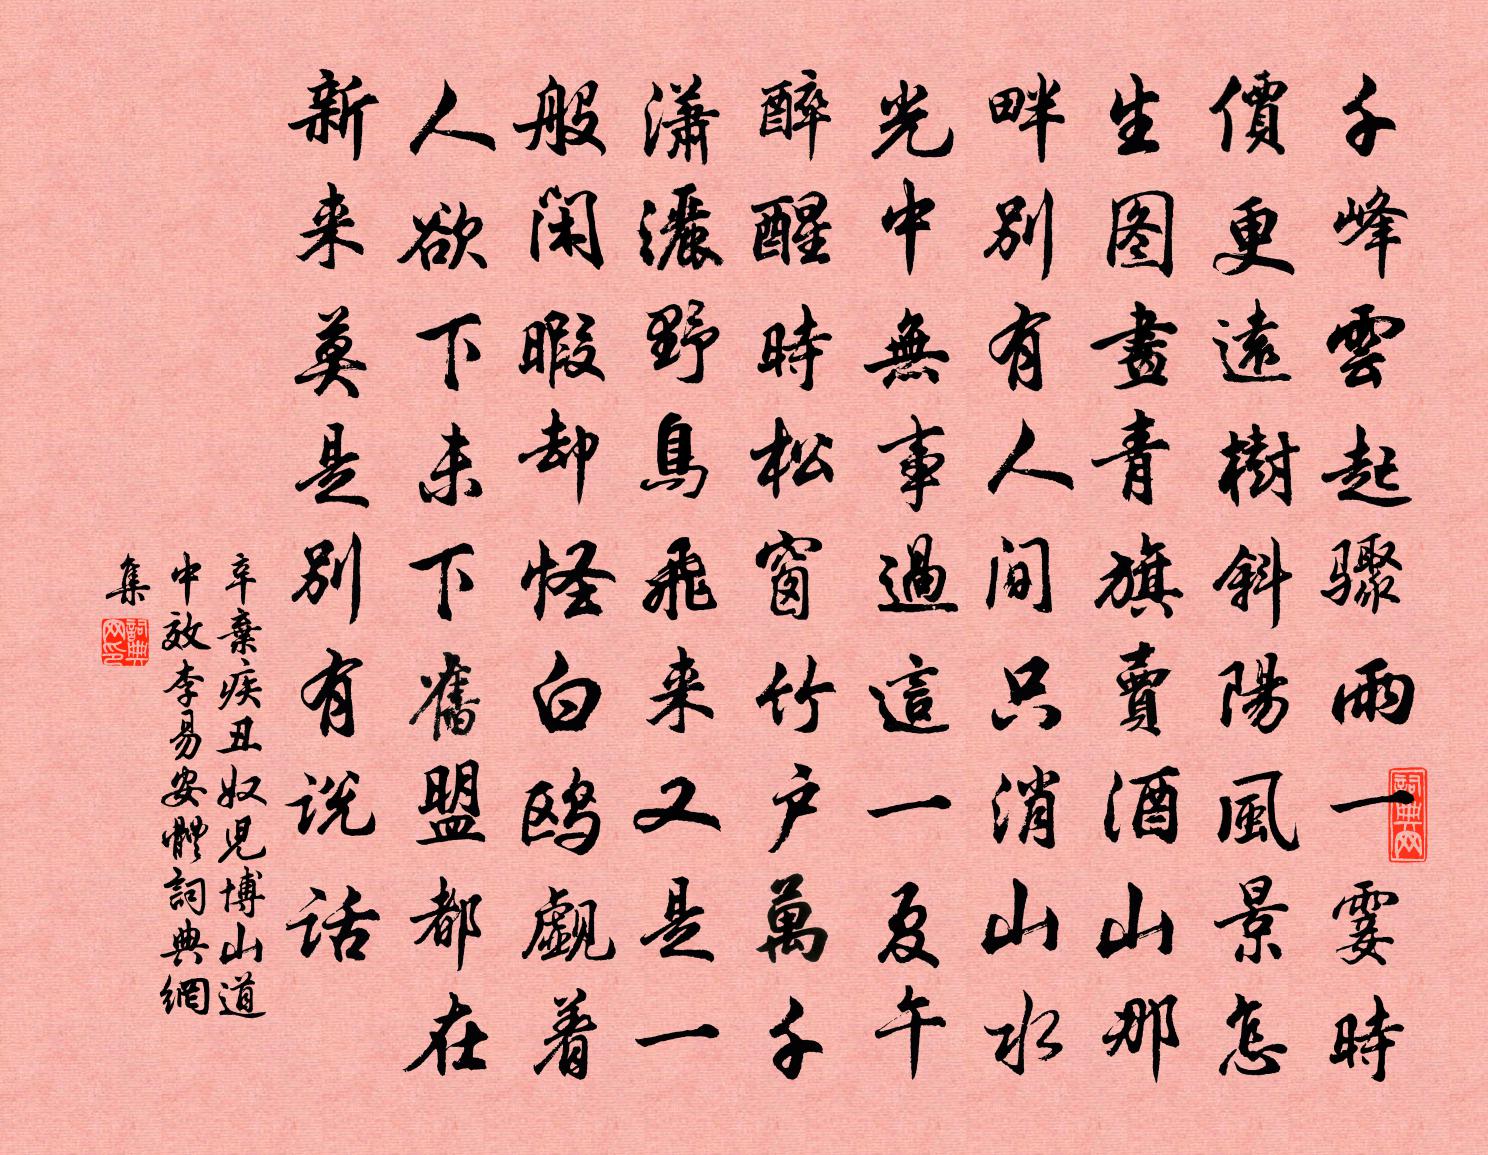 千峰雲起驟雨一霎時
價更遠樹斜陽風景怎
生图畫青旗賣酒山那
畔别有人间只消山水
光中無事過這一夏午
醉醒時松窗竹户萬千
瀟灑野鳥飛来又是一
般闲暇却怪白鸥覷着
人欲下未下舊盟都在
新来莫是别有说话
辛棄疾丑奴児博山道
中效李易安體詞典網
集
詞典网
詞典网印